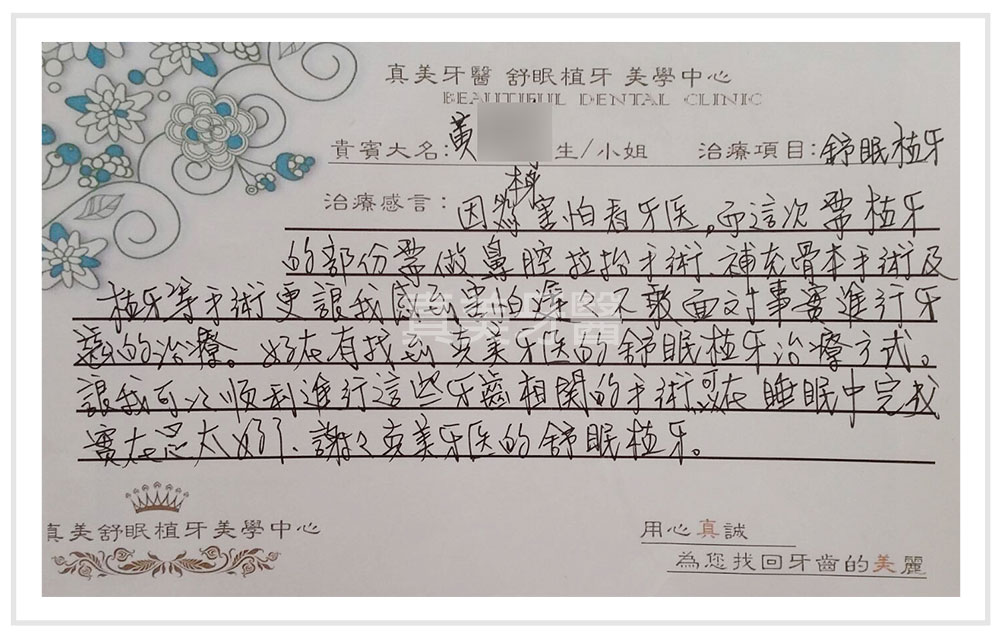 真美牙醫 舒眠植牙 美學中心
BEAUTIFUL DENTAL CLINIC
貴賓大名:黃 生/小姐 治療項目:舒眠植牙
治療感言:因為本身害怕看牙医,而這次需植牙
的部份需做鼻腔拉抬手術、補充骨本手術及
植牙等手術更讓我感到害怕,遲々不敢面对事實進行牙
齒的治療。好在有找到真美牙医的舒眠植牙治療方式。
讓我可以順利進行這些牙齒相關的手術,可以在睡眠中完成
實在是太好了、謝々真美牙医的舒眠植牙。
真美牙醫
真美舒眠植牙美學中心
用心真誠
為您找回牙齒的美麗